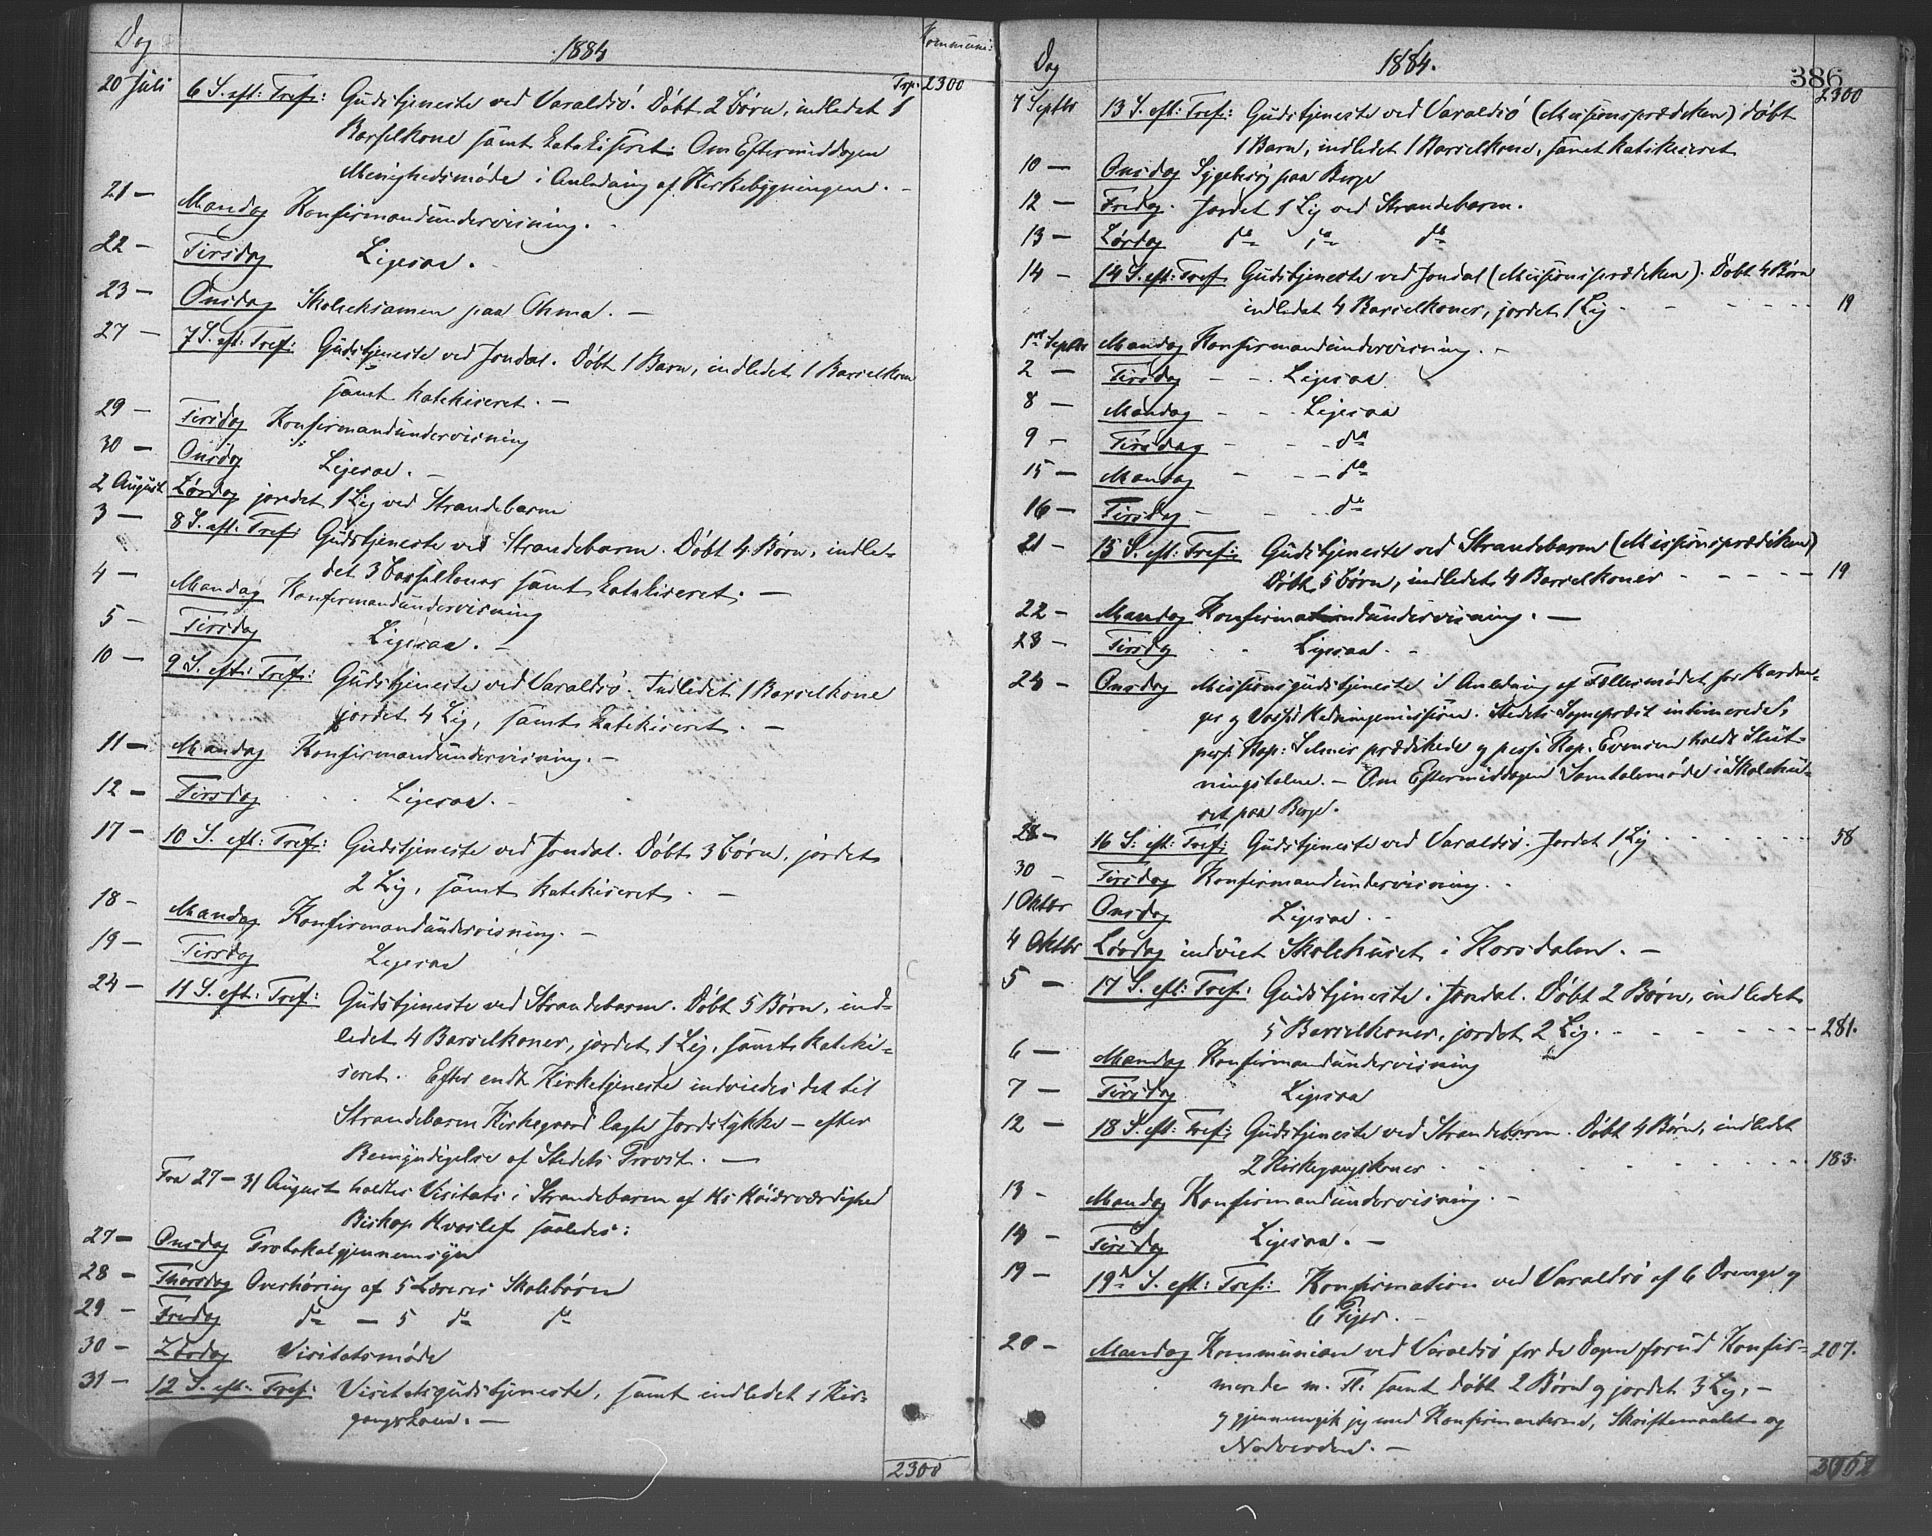 Dag 1884 Kommuni:
20 Juli 6 S. eft: Tref: Gudstjeneste ved Varaldsö. Döbt 2 Börn, indledet 1 Trp. 2300
Barselkone samt katekiseret. Om Eftermiddagen
Menighedsmöde i Anledning af Kirkebygningen. –
21 – Mandag Konfirmandundervisning. –
22 – Tirsdag Ligesaa. –
23 – Onsdag Skoleeksamen paa Ohma. –
27 – 7 S. eft: Tref: Gudstjeneste ved Jondal. Döbt 1 Barn, indledet 1 Barselkone
samt katekiseret. –
29 – Tirsdag Konfirmandundervisning
30 – Onsdag Ligesaa. –
2 August Lördag jordet 1 Lig ved Strandebarm
3 – 8 S. eft: Tref: Gudstjeneste ved Strandebarm. Döbt 4 Börn, indle-
det 3 Barselkoner samt katekiseret. –
4 – Mandag Konfirmandundervisning
5 – Tirsdag Ligesaa. –
10 – 9 S. eft: Tref: Gudstjeneste ved Varaldsö. Indledet 1 Barselkone
jordet 4 Lig, samt katekiseret. –
11 – Mandag Konfirmandundervisning. –
12 – Tirsdag Ligesaa. –
17 – 10 S. eft: Tref: Gudstjeneste ved Jondal. Döbt 3 Börn, jordet
2 Lig, samt katekiseret. –
18 – Mandag Konfirmandundervisning. –
19 – Tirsdag Ligesaa
24 – 11 S. eft: Tref: Gudstjeneste ved Strandebarm. Döbt 5 Börn, ind-
ledet 4 Barselkoner, jordet 1 Lig, samt kateki-
seret. Efter endt Kirketjeneste indviedes det til
Strandebarm Kirkegaard lagte Jordstykke – efter
Bemyndigelse af Stedets Provst. –
Fra 27 – 31 August holdtes Visitats i Strandebarm af Hs Höiærværdighed
Biskop Hvoslef saaledes:
27 – Onsdag Protokolgjennemsyn
28 – Thorsdag Overhöring af 5 Læreres Skolebörn
29 – Fredag do – 5 do do
30 – Lördag Visitatsmöde
31 – 12 S. eft: Tref: Visitatsgudstjeneste, samt indledet 1 Kir-
gangskone. –
2300
Dag 1884. 386
7 Septbr 13 S. eft: Tref: Gudstjeneste ved Varaldsö (Missionsprædeken) döbt 2300
1 Barn, indledet 1 Barselkone, samt katekiseret
10 – Onsdag Sygebesög paa Berge
12 – Fredag. Jordet 1 Lig ved Strandebarm.
13 – Lördag do do do
14 – 14 S. eft: Tref. Gudstjeneste ved Jondal (Missionsprædeken). Döbt 4 Börn
indledet 4 Barselkoner, jordet 1 Lig 19
1st Septbr Mandag Konfirmandundervisning. –
2 – Tirsdag – – Ligesaa
8 – Mandag – – Ligesaa
9 – Tirsdag – – do
15 – Mandag – – do
16 – Tirsdag – – do
21 – 15 S. eft: Tref: Gudstjeneste ved Strandebarm (Missionsprædeken)
Döbt 5 Börn, indledet 4 Barselkoner – – – – – 19
22 – Mandag Konfirmandundervisning. –
23 – Tirsdg – – Ligesaa. –
24 – Onsdag Missionsgudstjeneste i Anledning af Fællesmödet for Hardan-
ger og Voss's Hedningemission. Stedets Sogneprest intimerede,
pers: Kap: Selmer prædikede og pers: Kap. Evensen holdt Slut-
ningstalen. – Om Eftermiddagen Samtalemöde i Skolehu-
set paa Berge.
28 – 16 S: eft: Tref: Gudstjeneste ved Varaldsö. Jordet 1 Lig 58
30 – Tirsdag Konfirmandundervisning. –
1 Oktbr Onsdag Ligesaa –
4 Oktbr Lördag indviet Skolehuset i Korsdalen. –
5 – 17 S. eft: Tref: Gudstjeneste i Jondal. Döbt 2 Börn, indledet
5 Barselkoner, jordet 2 Lig. – – – – – 281.
6 – Mandag Konfirmandundervisning
7 – Tirsdag Ligesaa
12 – 18 S. eft: Tref: Gudstjeneste ved Strandebarm. Döbt 4 Börn, indledet
2 Kirkegangskoner 183.
13 – Mandag Konfirmandundervisning. –
14 – Tirsdag Ligesaa. –
19 – 19d S. eft: Tref: Konfirmation ved Varaldsö af 6 Drenge og
6 Piger. –
20 – Mandag Kommunion ved Varaldsö for de Dagen forud Konfir- 207.
merede m. Fl. samt döbt 2 Börn og jordet 3 Lig. –
og gjennemgik jeg med Konfirmanterne, Skriftemaalet og
Nadverden. –